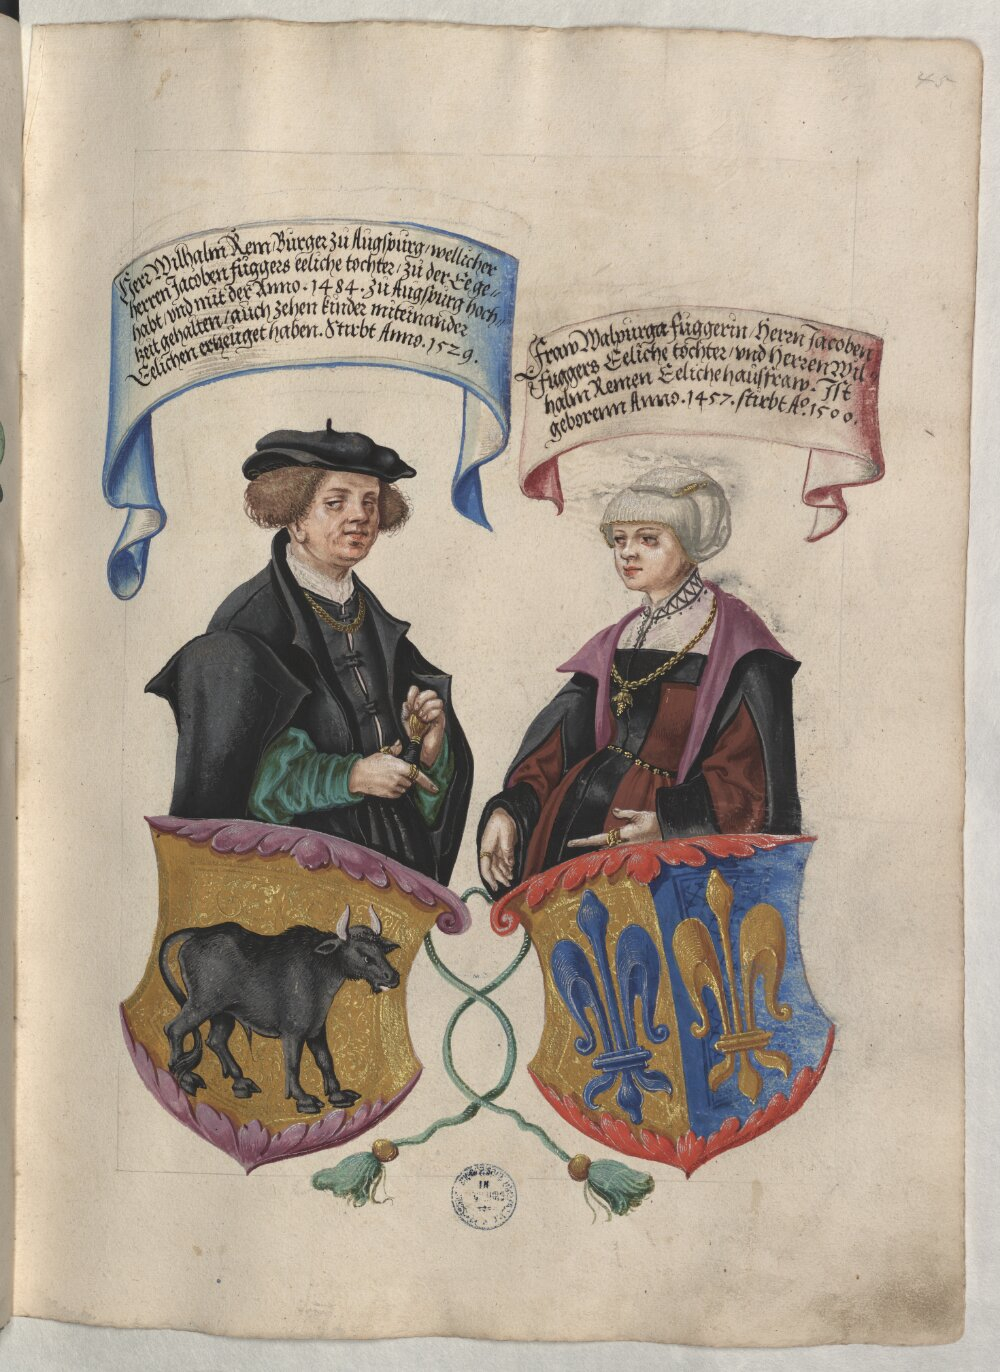 Herr Wilhalm Rem / Burger zů Augspurg / wellicher
herren Jacoben függers eeliche tochter / zů der Ee ge⸗
habt / vnd mit der Anno . 1484 . zů Augspurg hoch⸗
zeit gehalten / auch zehen kinder miteinander
Eelichen erzeüget haben . Stirbt Anno . 1529 .
Fraw Walpurga függerin / Herrn Jacoben
Fuggers Eeliche tochter / vnd Herren Wil⸗
halm Remen Eeliche hausfraw . Ist
geborenn Anno . 1457 . stirbt Aº . 1500 .